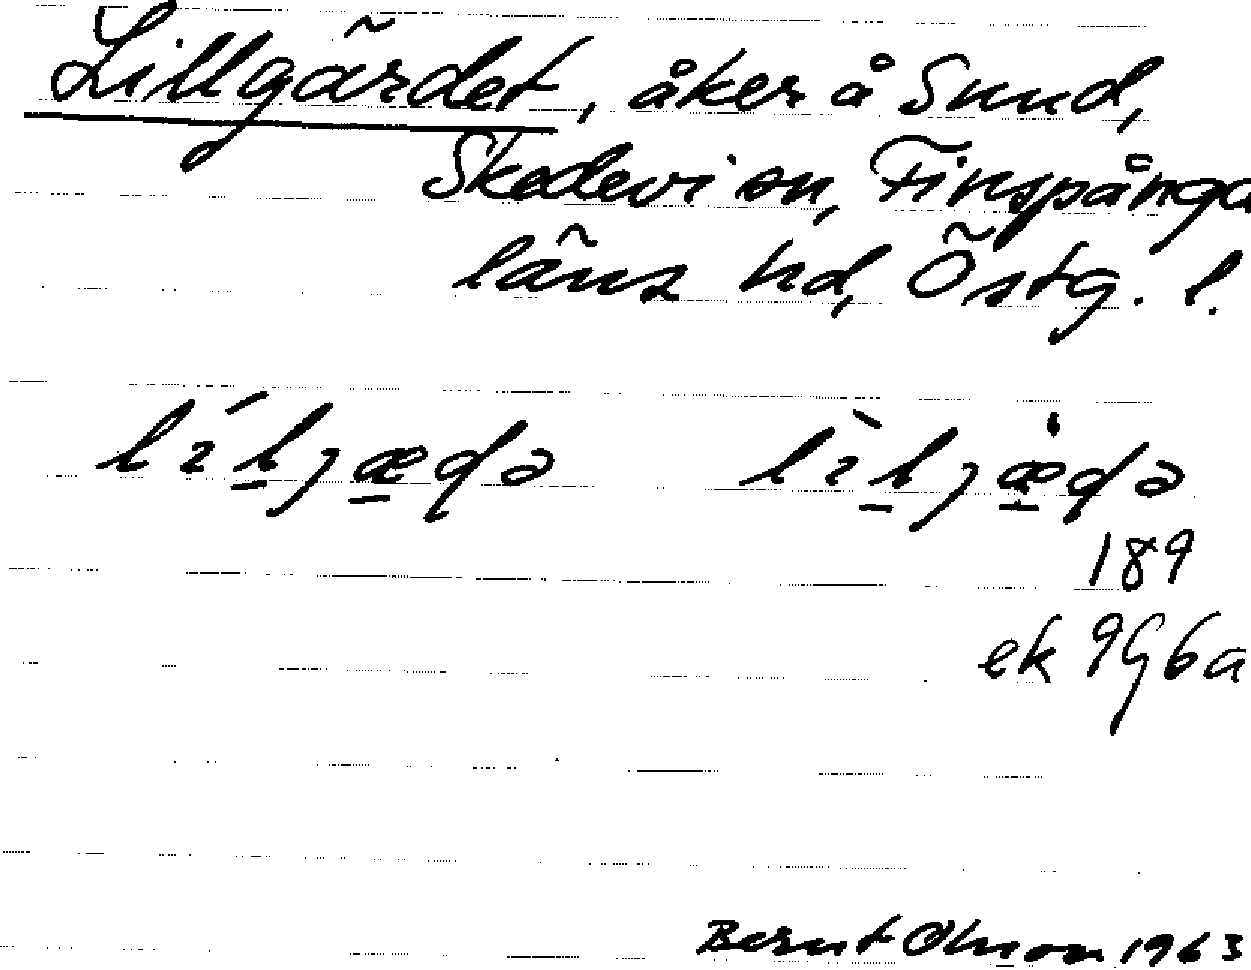 Lillgärdet, åker å Sund,
Skedevi sn, Finspånga
läns hd, Östg. l.
lɪ́l̲ȷæ̲ɖə lɪ̀l̲ȷæ̲̇ɖə
189
ek 9G6a
Bernt Olsson 1963